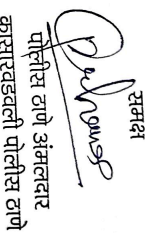 समक्ष
पोलीस ठाणे अंमलदार
कासारवडवली पोलीस ठाणे